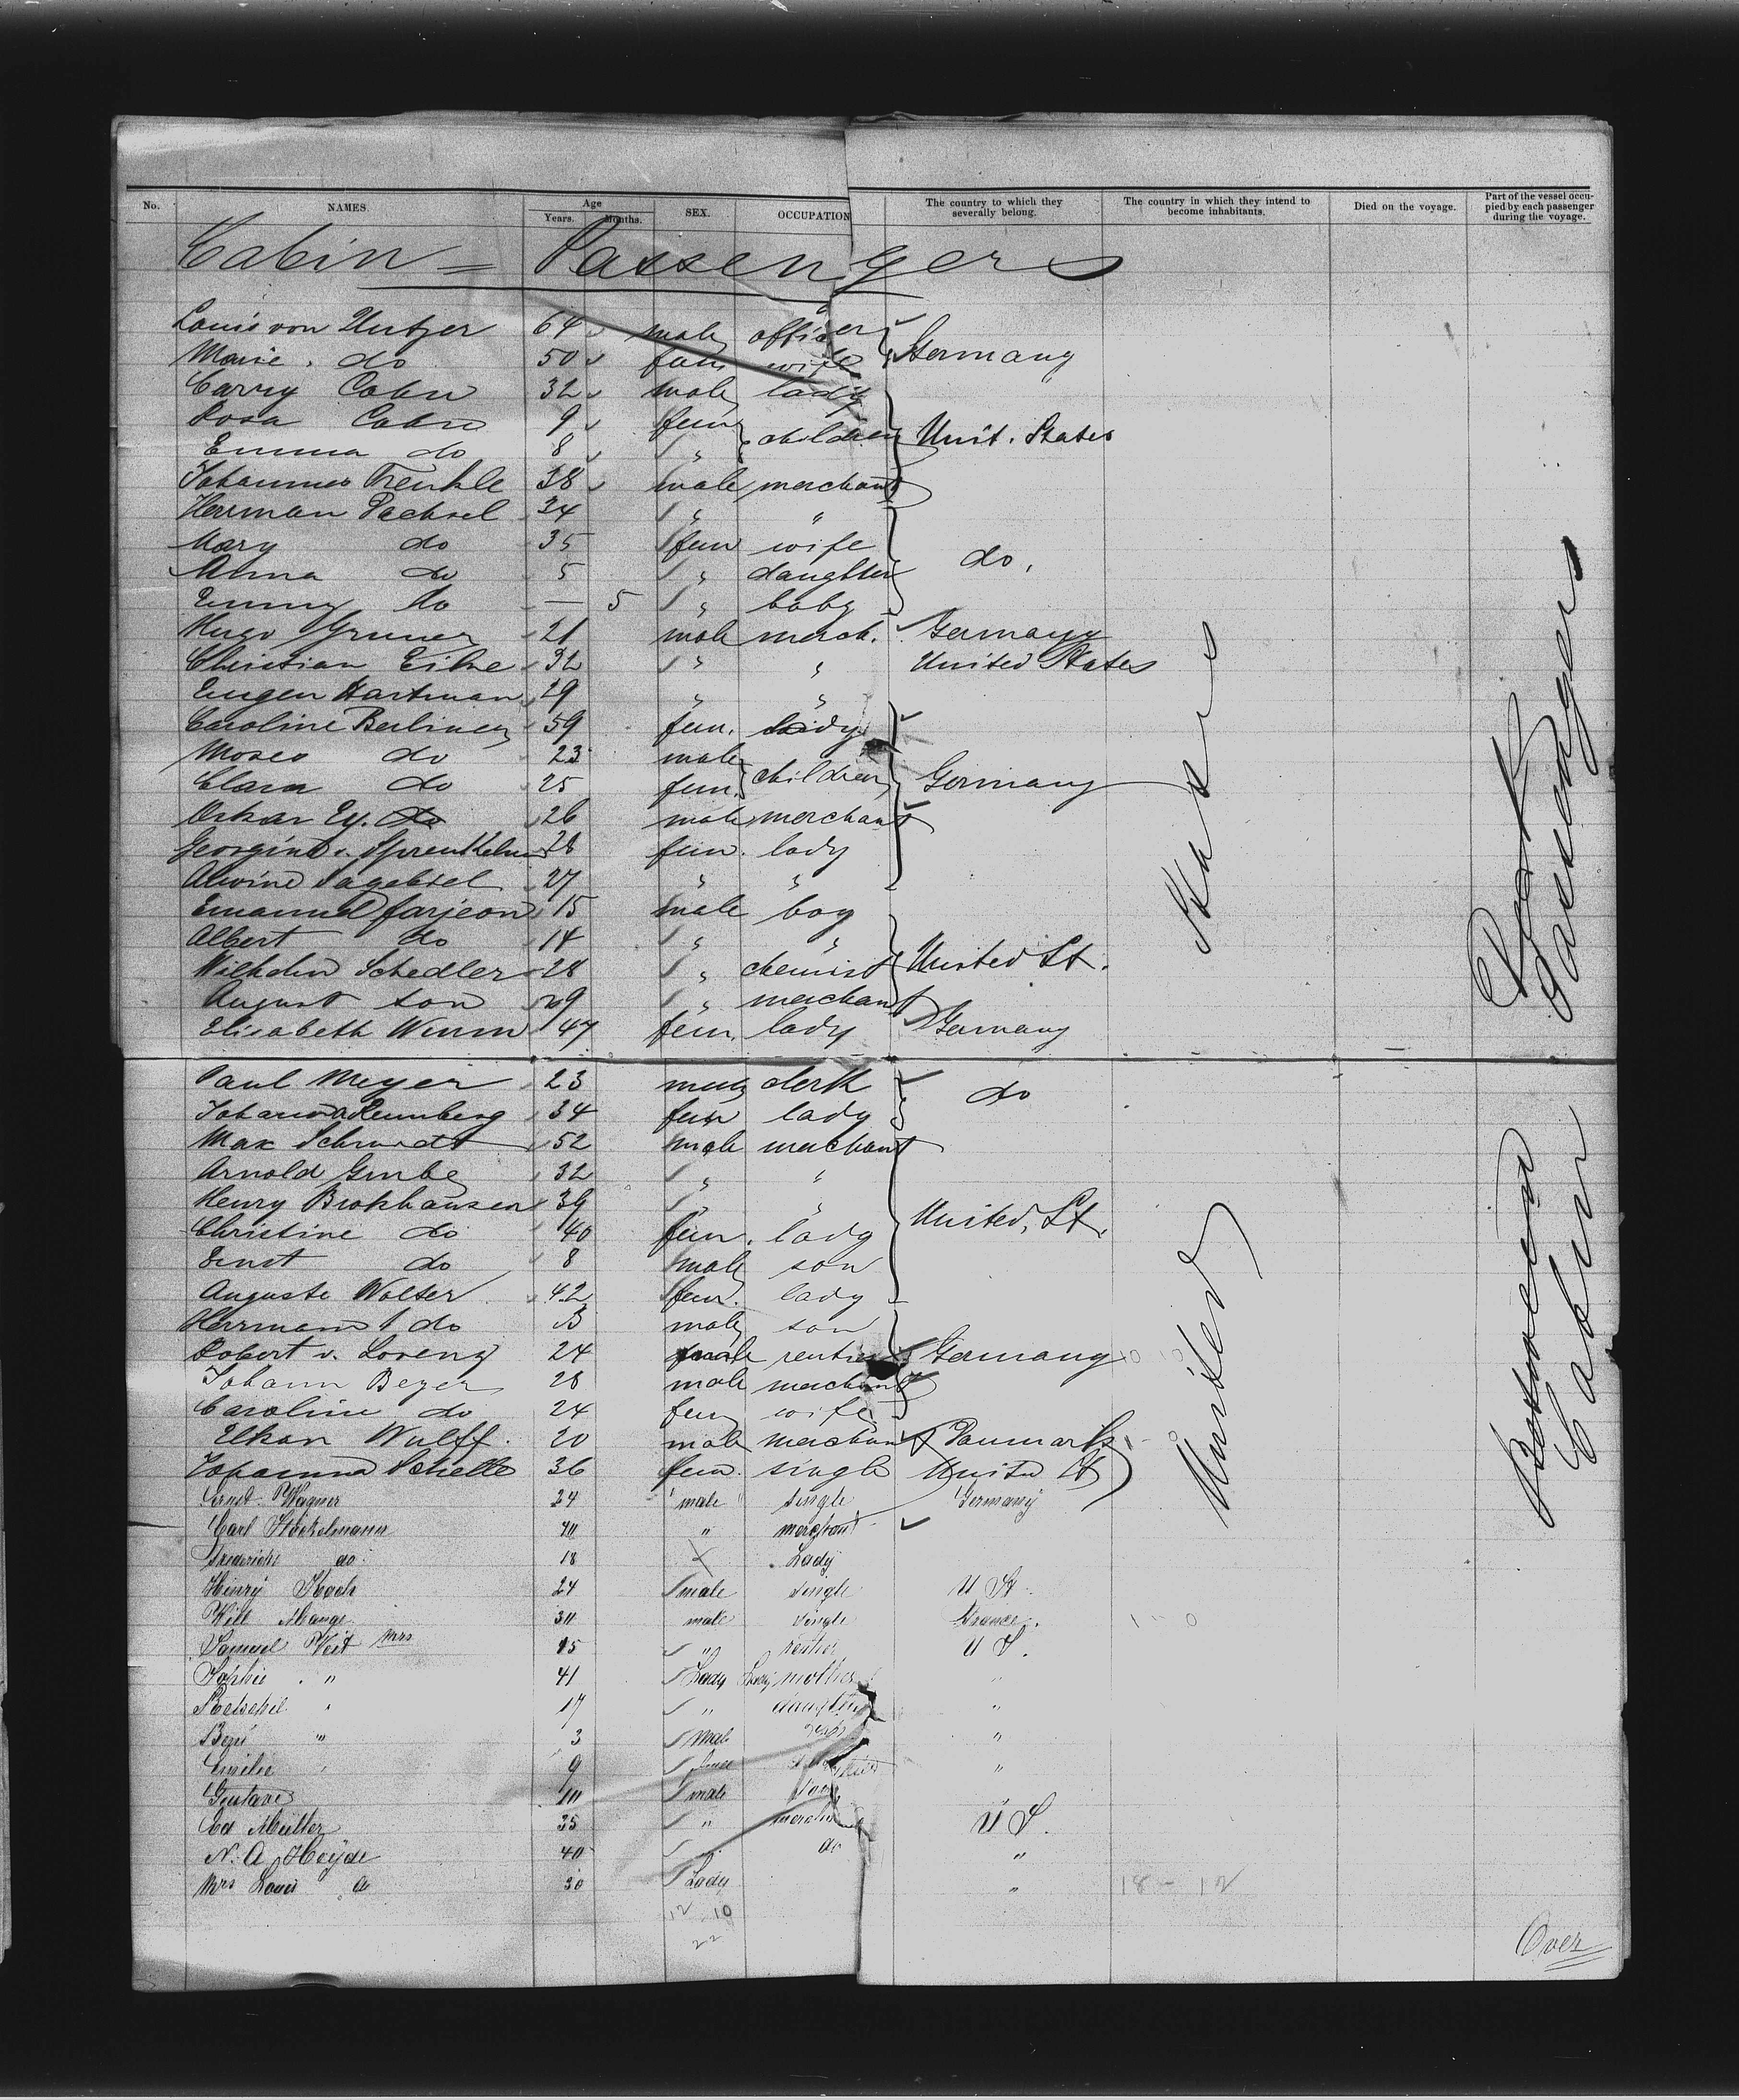 No. NAMES. Age Years. Months. SEX. OCCUPATION The country to which they severally belong. The country in which they intend to become inhabitants. Died on the voyage. Part of the vessel occupied by each passenger during the voyage.
Cabin = Passengers
Louis von Untzer 64 male officer Germany
Marie do 50 fem wife
Carry Cohn 32 male lady
Rosa Cohn 9 fem children Unit. States
Emma do 8 "
Johannes Trenkle 38 male merchant
Herrman Pachsel 34 " "
Mary do 35 fem wife do.
Anna do 5 " daughter
Emmy do — 5 " baby
Hugo Gruner 21 male merch. Germany
Christian Eike 32 " " United States
Eugen Hartman 29 " "
Caroline Berliner 59 fem. lady
Moses do 23 male children Germany
Clara do 25 fem.
Oskar Ey. do 26 male merchant
Georgine v. 28 fem. lady
Alwine Sagebiel 27 " "
Emanuel Farjeon 15 male boy
Albert do 14 " "
Wilhelm Schedler 28 " chemist United St.
August son 29 " merchant
Elisabeth Wurm 47 fem. lady Germany
Paul Meyer 23 male clerk do
Johanna Rennberg 34 fem lady
Max Schmidt 52 male merchant
Arnold 32 " "
Henry Brokhausen 39 " "
Christine do 40 fem. lady United. St.
Ernst do 8 male son
Auguste Wolter 42 fem. lady
Herrmann do 3 male son
Robert v. Lorenz 24 male rentier Germany
Johann Beyer 28 male merchant
Caroline do 24 fem wife
Elkan Wulff. 20 male merchant Danmark
Johanna Schelle 36 fem. single United St
Ernst Wagner 24 male single Germany
Carl 40 " merchant
Frederike do 18 Lady
Henry Koch 24 male single U St.
Will Mange 30 male single France.
Samuel Veit Mrs 45 " rentier U S.
Sophie " 41 Lady Lady mother "
17 " daughter "
" 3 Male "
Emilie " 9 "
Gustave 10 male
Ed Müller 35 " merchant U S.
N. A. Heyde 40 do "
Mrs Louis do 30 Lady " 18 - 12
12 10
22
Over
United States
Deck Passengers
Between Cabin